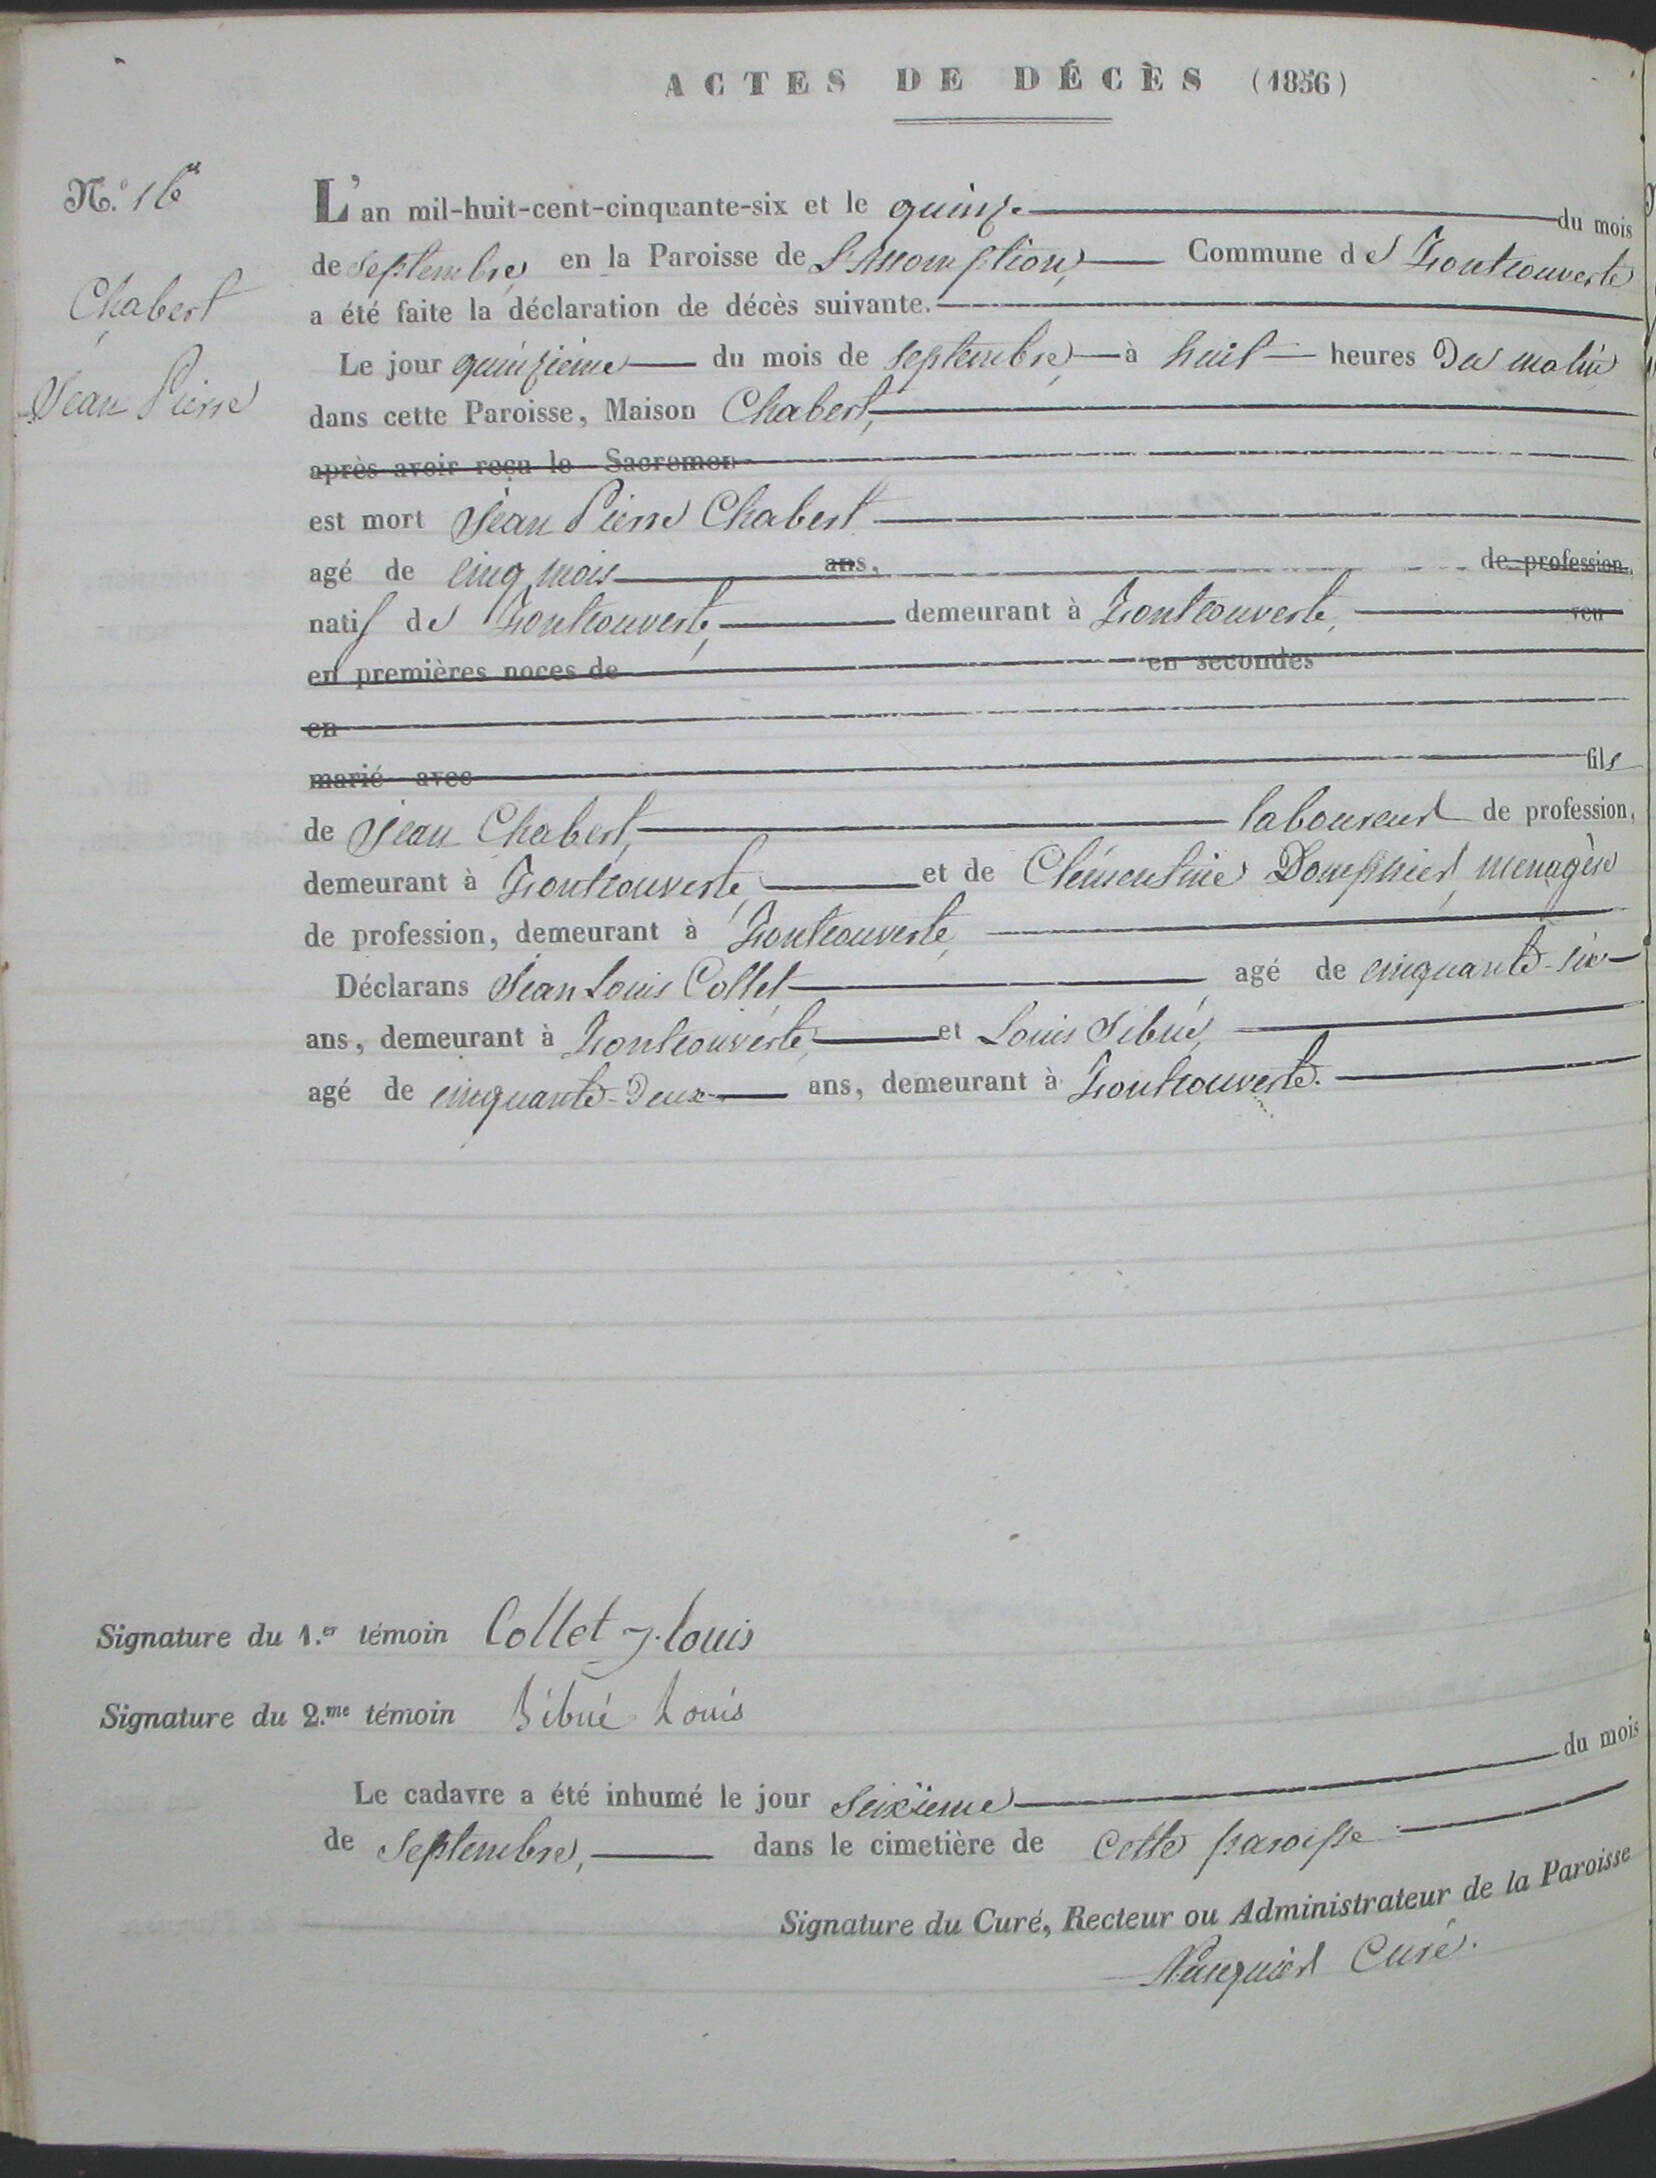 ACTES DE DÉCÈS (1856)
N.o 16e
Chabert
Jean Pierre
L'an mil-huit-cent-cinquante-six et le quinze du mois
de septembre, en la Paroisse de L'Assomption, Commune de Fontcouverte
a été faite la déclaration de décès suivante.
Le jour quinzième du mois de septembre à huit heures du matin
dans cette Paroisse, Maison Chabert,
après avoir reçu le Sacremen
est mort Jean Pierre Chabert
agé de cinq mois ans, de profession,
natif de Fontcouverte, demeurant à Fontcouverte, veu
en premières noces de en secondes
en
marié avec fils
de Jean Chabert, laboureur de profession,
demeurant à Fontcouverte, et de Clémentine Dompnier, menagère
de profession, demeurant à Fontcouverte,
Déclarans Jean Louis Collet agé de cinquante-six
ans, demeurant à Fontcouverte, et Louis Sibué,
agé de cinquante-deux ans, demeurant à Fontcouverte.
Signature du 1.er témoin Collet J. louis
Signature du 2.me témoin Sibué Louis
Le cadavre a été inhumé le jour seixième du mois
de septembre, dans le cimetière de cette paroisse
Signature du Curé, Recteur ou Administrateur de la Paroisse
Curé.